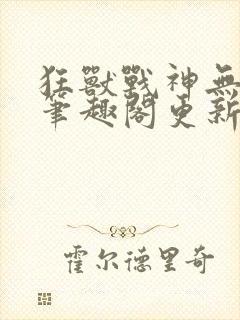 狂獸戰神無
筆趣閣更新
霍尔德里奇